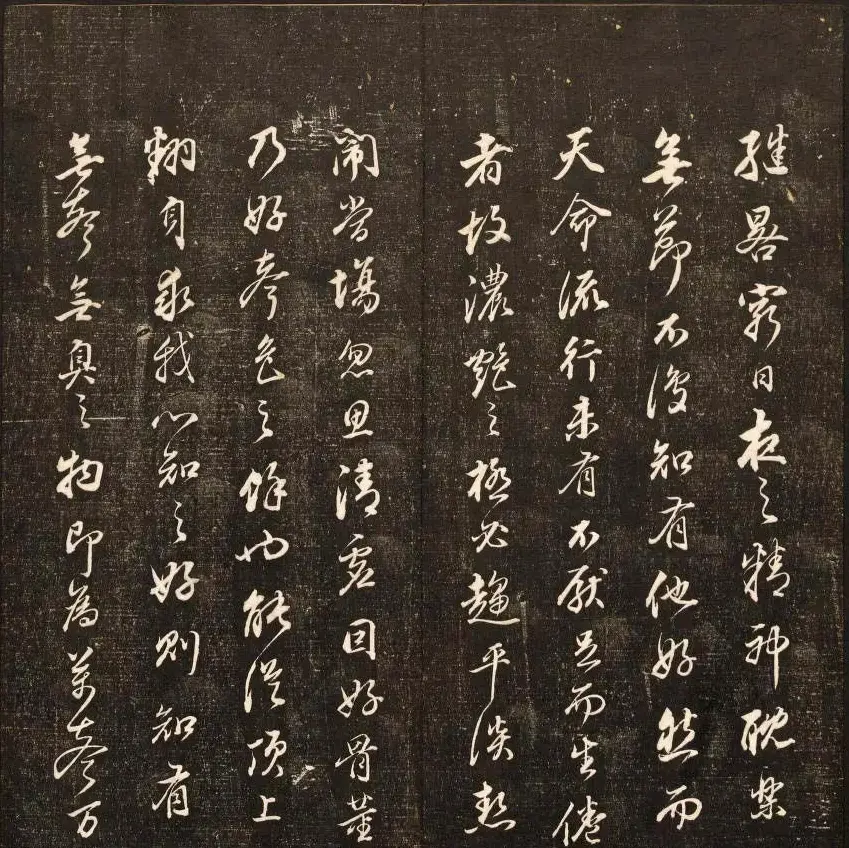 繼晷窮日夜之精神耽樂
無節不復知有他好然而
天命流行未有不厭足而生倦
者故濃艷之極必趨平淡熱
鬧當場忽思清虛因好骨董
乃好聲色之餘也能從頂上
翻身求我心知之好則知有
無聲無臭之物即為萬聲万